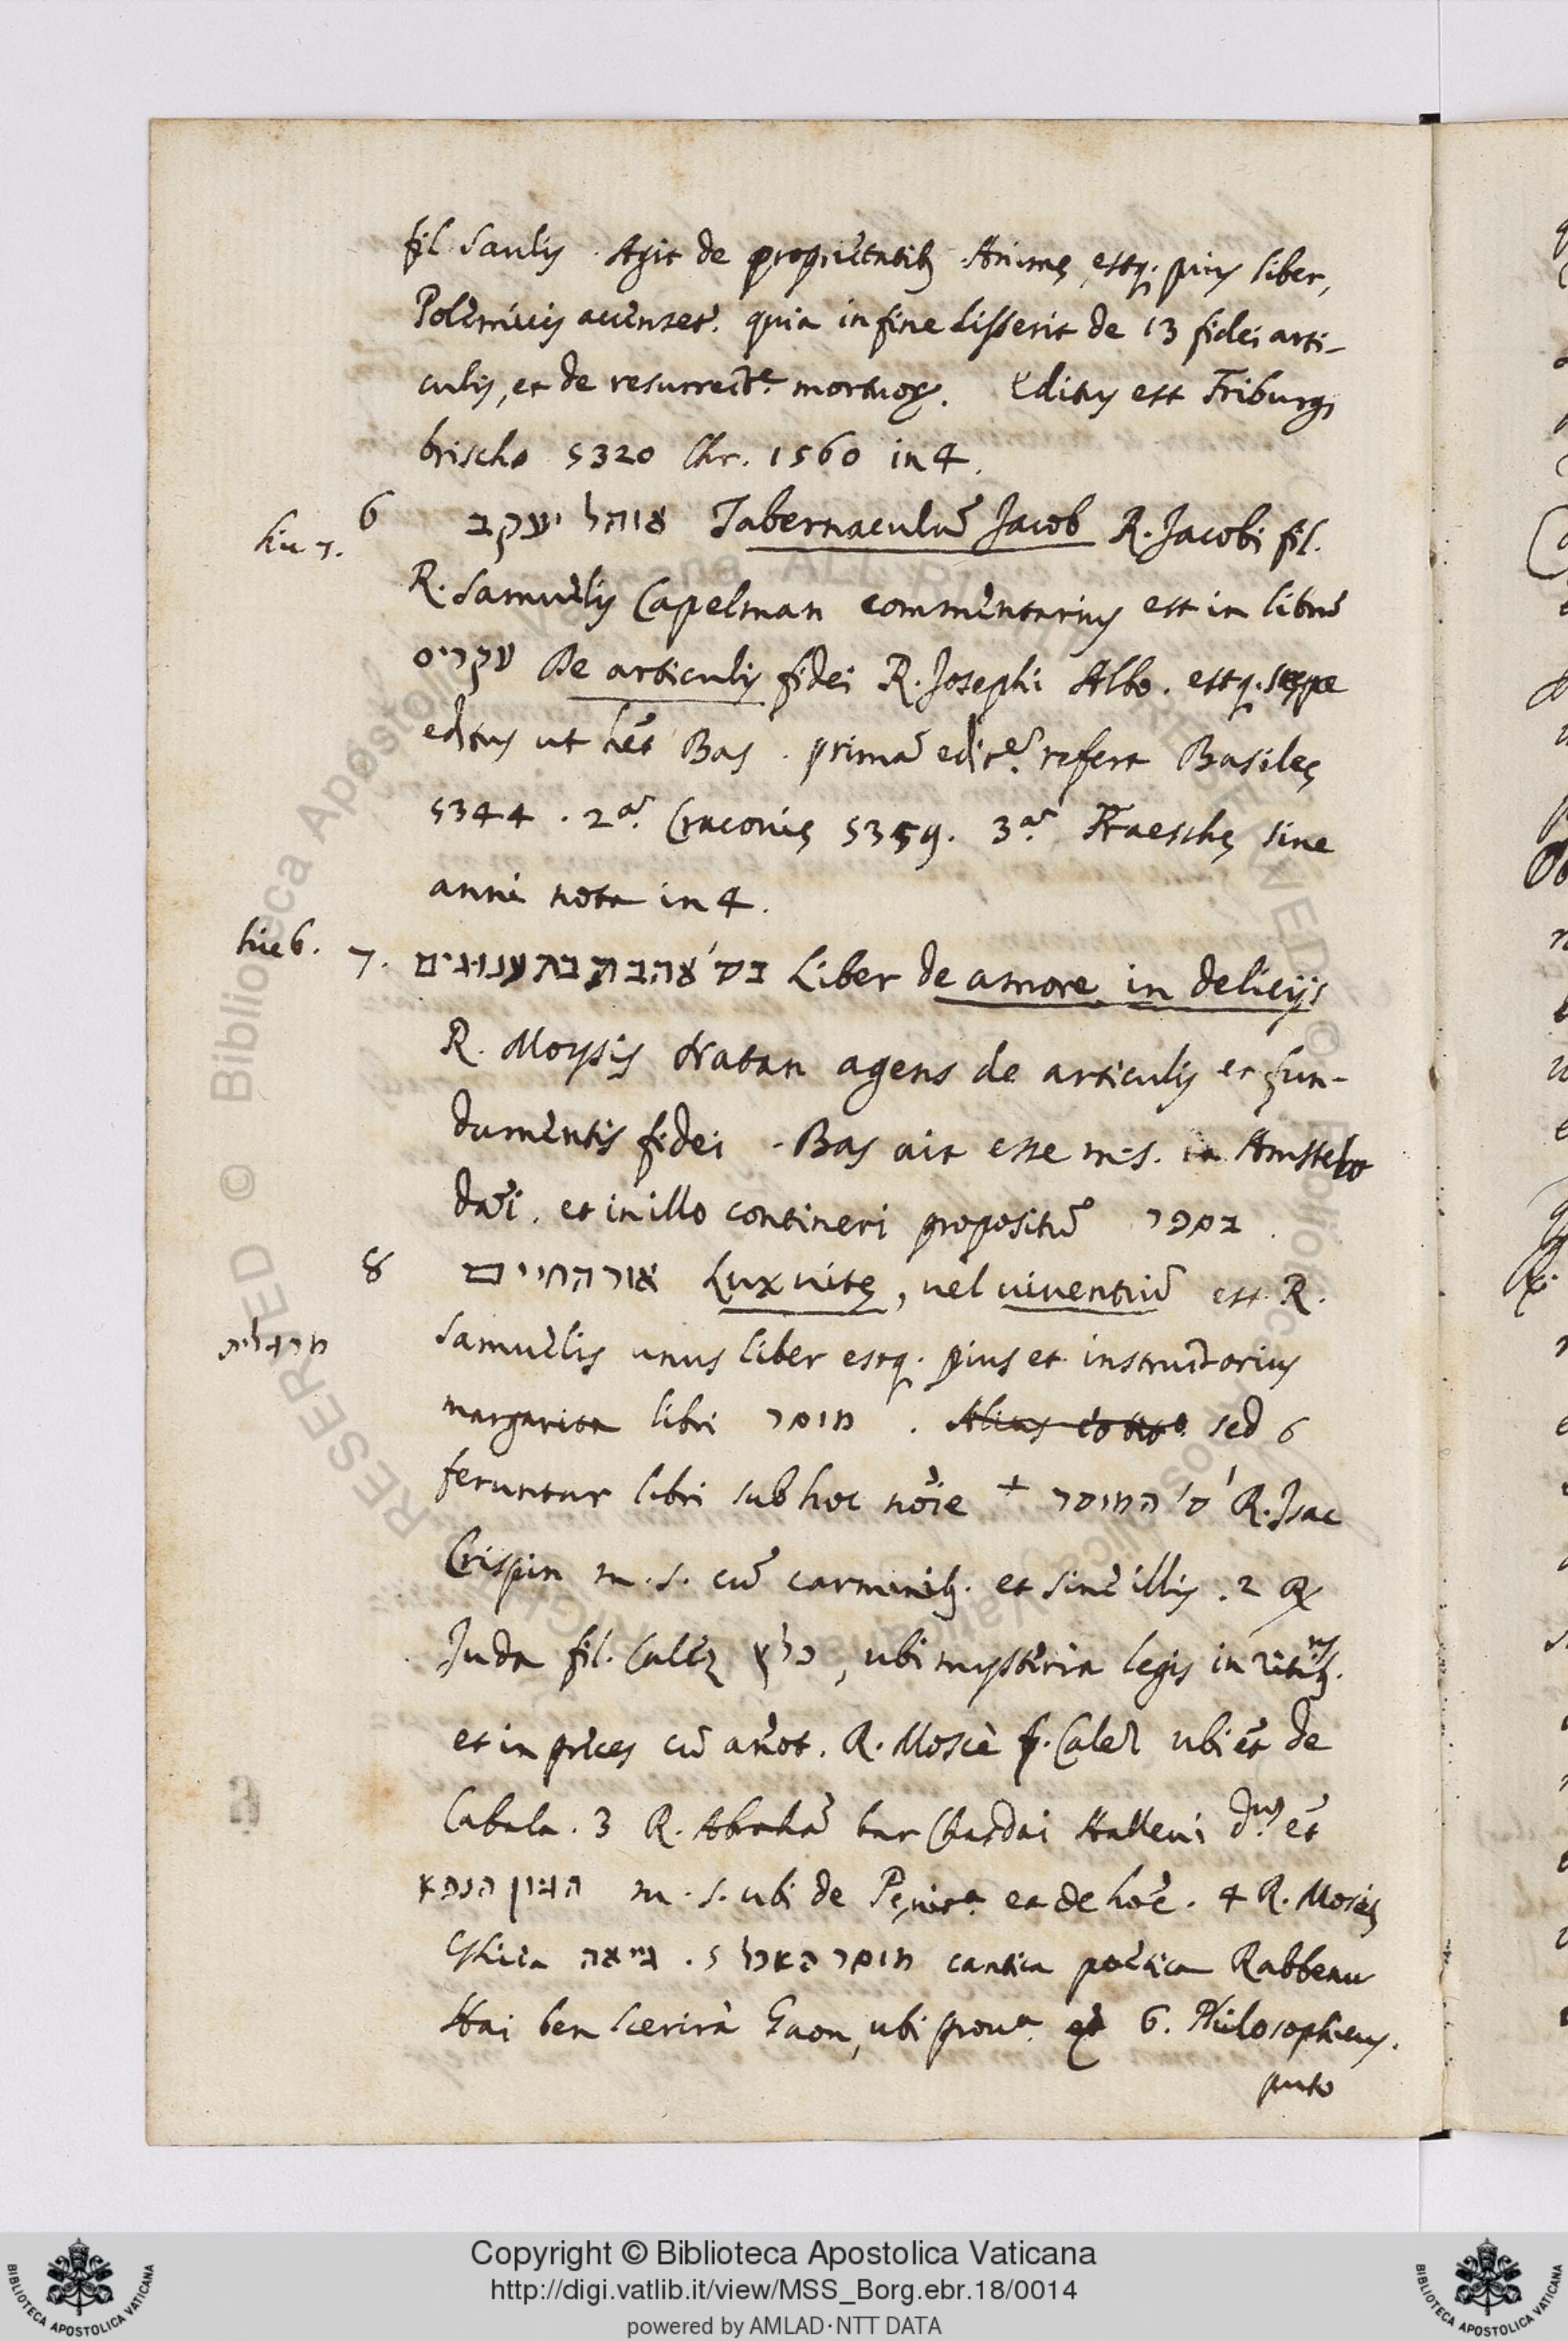 fil. Saulis. Agit de proprietatib; Animę, estq; pius liber,
Polemicis accenset.' quia in fine disserit de 13 fidei arti-
culis, et de resurrect.e mortuoꝝ. Editus est Friburgi
brischo 5320 Chr. 1560 in 4.
hic 7. 6 אוהל יעקב Tabernaculũ Jacob R. Jacobi fil.
R. Samuelis Capelman commentarius est in librũ
עקרים De articulis fidei R. Josephi Albo. estq; sęępe
editus ut hẽt Bas. primã edit.ẽ refert Basileę
5344. 2.ã Cracovię 5359. 3.ã Fraeschę sine
anni nota in 4.
hic 6. 7. בס' אהבת בתענוגים Liber de amore in delicijs
R. Moysis Natan agens de articulis et fun-
damentis fidei. Bas ait esse m.s. in Amstelo
dãi. et in illo contineri propositũ בספר.
8 אור החיים Lux vitę, vel viventiũ est R.
מרגלית Samuelis unus liber estq; pius et instructorius
margarita libri מוסר. Alius sed 6
feruntur libri sub hoc nõie + ס' המוסר R. Isac
Crispin m.s. cũ carminib; et sine illis. 2 R
Juda fil. Calez כלץ, ubi mysteria legis in ritib;
et in preces cũ annot. R. Moscè f. Calez ubi ẽt de
Cabala. 3 R. Abrahã bar Chasdai Hallevi ẽt
הגיון הנפא m.s. ubi de Pęnit.a et de hoĩe. 4 R. Mosis
גיאה. מוסר האכל 5 cantica poetica Rabbenu
Hai ben scerirà Gaon, ubi prov.a 6. Philosophicus.
puto
Copyright © Biblioteca Apostolica Vaticana
http://digi.vatlib.it/view/MSS_Borg.ebr.18/0014
powered by AMLAD·NTT DATA